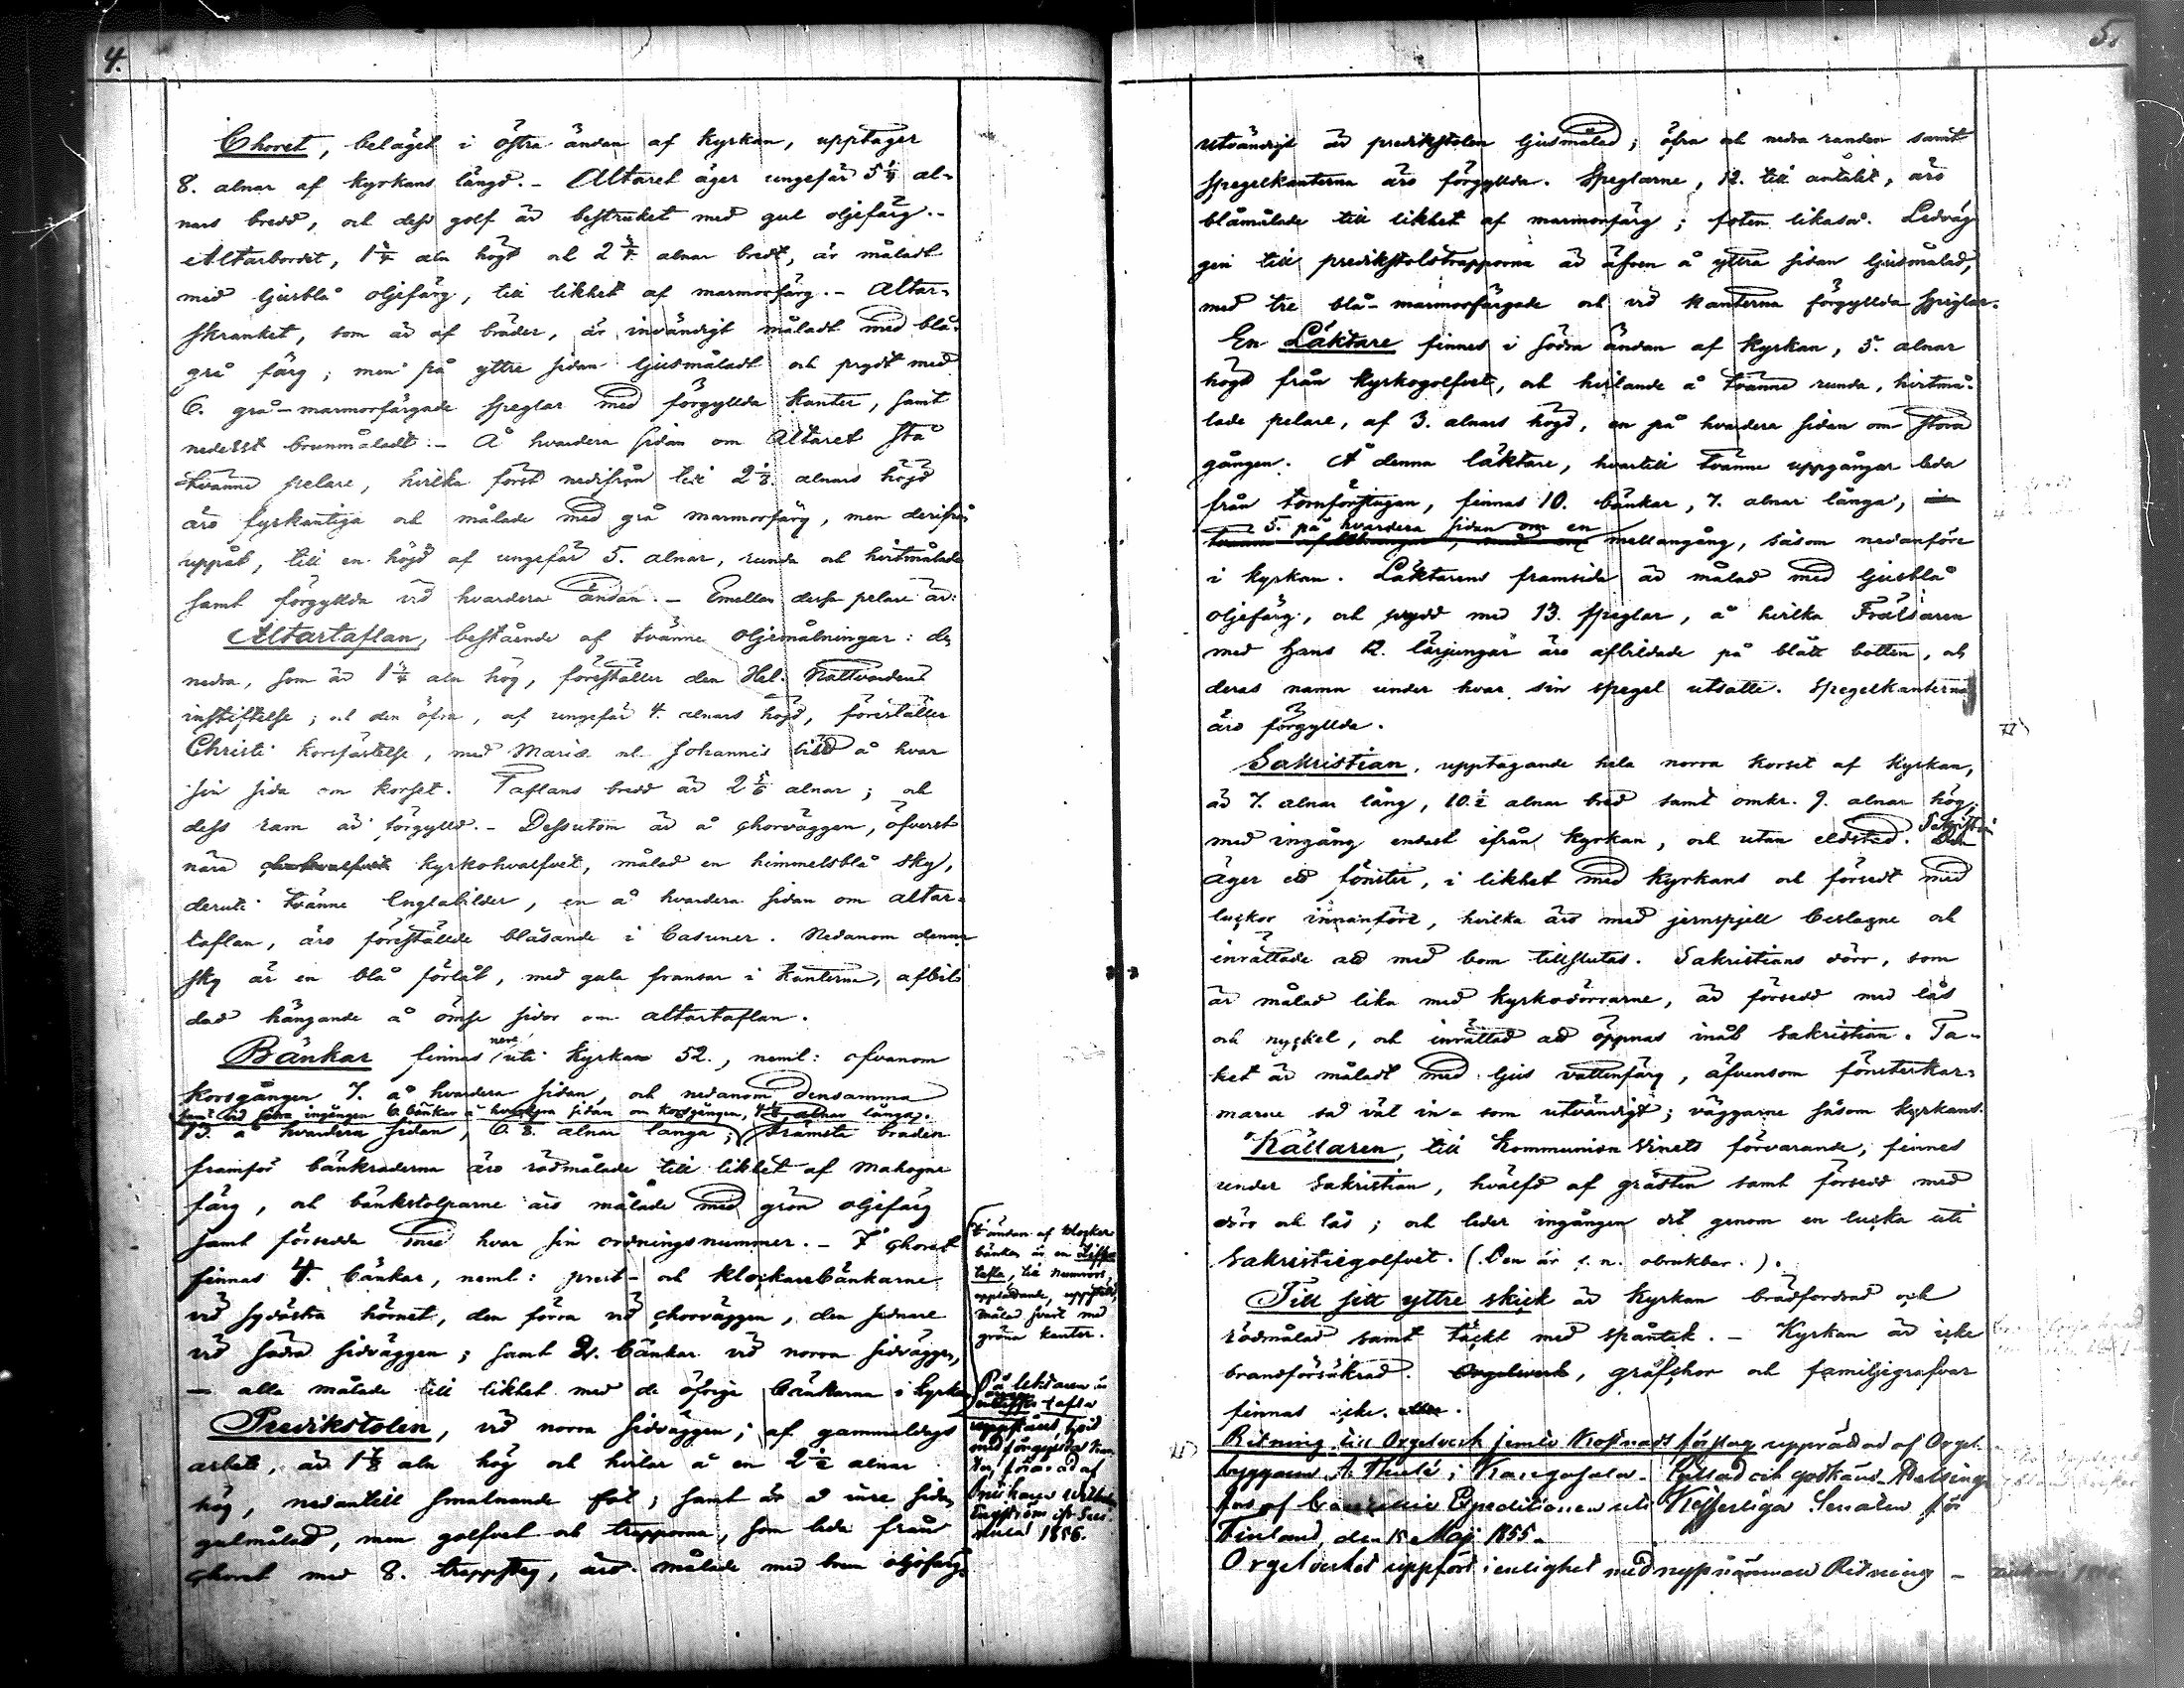 4.
Choret, beläget i östra ändan af kyrkan, upptager
8. alnar af kyrkans längd. - Altaret äger ungefär 5 1/4 al-
nars bredd, och dess golf är bestruket med gul oljefärg. -
Altarbordet, 1 1/4 aln högt och 2 3/4 alnar bredt, är måladt
med ljusblå oljefärg, till likhet af marmorfärg. - Altar-
skranket, som är af bräder, är invändigt måladt med blå-
grå färg; men på yttre sidan ljusmåladt och prydt med
6. grå-marmorfärgade speglar med förgyllda kanter, samt
nederst brunmåladt. - Å hvardera sidan om Altaret stå
tvänne pelare, hvilka först nedifrån till 2 1/8 alnars höjd
äro fyrkantiga och målade med grå marmorfärg, men derifrån
uppåt, till en höjd af ungefär 5. alnar, runda och hvitmålade
samt förgyllda vid hvardera ändan. - Emellan dessa pelare är:
Altartaflan, bestående af tvänne oljemålningar: de
nedra, som är 1 1/4 aln hög, föreställer den Hel. Nattvardens
instiftelse; och den öfra, af ungefär 4. alnars höjd, föreställer
Christi korsfästelse, med Mariæ och Johannis bild å hvar
sin sida om korset. Taflans bredd är 2 alnar; och
dess ram är förgylld. - Dessutom är å chorväggen, öfverst
nära kyrkohvalfvet, målad en himmelsblå sky,
deruti tvänne Englabilder, en å hvardera sidan om altar-
taflan, äro föreställde blåsande i Basuner. Nedanom denna
sky är en blå förlåt, med gula fransar i kanterna, afbil-
dad hängande å ömse sidor om altartaflan.
Bänkar finnas nere uti kyrkan 52., neml: ofvanom
korsgången 7. å hvardera sidan, och nedanom densamma
samt vid södra ingången 6. bänkar å hvardera sidan om korsgången, 4 1/2 alnar långa.
13. å hvardera sidan, 6. 8. alnar långa; främsta bräden
framför bänkraderna äro rödmålade till likhet af Mahogne
färg, och bänkstolparne äro målade med grön oljefärg
samt försedda med hvar sin ordningsnummer. - I choret
finnas 4. bänkar, neml: prest- och klockarebänkarne
vid sydöstra hörnet, den förra vid chorväggen, den sednare
vid södra sidväggen; samt 2. bänkar vid norra sidväggen,
- alla målade till likhet med de öfriga bänkarna i kyrkan
Predikstolen, vid norra sidväggen; af gammaldags
arbete, är 1 7/8 aln hög och hvilar å en 2 1/2 alnar
hög, nedantill smalnande fot; samt är å inre sidan
gulmålad, men golfvet och trapporna, som leda från
choret med 8. trappsteg, äro målade med brun oljefärg.
I ändan af klockare
bänken är en Siffer
tafla, till numrors
uppsättande,
målad svart med
gröna kanter.
På läktaren är
tafla
med förgyllda kan
ter,
1856.
5.
utvändigt är predikstolen ljusmålad; öfra och nedra randen samt
spegelkanterna äro förgyllda. Speglarne, 12. till antalet, äro
blåmålade till likhet af marmorfärg; foten likaså. Ledväg-
gen till predikstolstrapporna är äfven å yttra sidan ljusmålad,
med tre blå-marmorfärgade och vid kanterna förgyllda speglar.
En Läktare finnes i södra ändan af kyrkan, 5. alnar
högt från kyrkogolfvet, och hvilande å tvänne runda, hvitmå-
lade pelare, af 3. alnars höjd, en på hvardera sidan om stora
gången. Å denna läktare, hvartill tvänne uppgångar leda
från tornförstugan, finnas 10. bänkar, 7. alnar långa,
5. på hvardera sidan om en
mellangång, såsom nedanföre
i kyrkan. Läktarens framsida är målad med ljusblå
oljefärg, och prydd med 13. speglar, å hvilka Frälsaren
med Hans 12. lärjungar äro afbildade på blått botten, och
deras namn under hvar sin spegel utsatte. Spegelkanterna
äro förgyllda.
Sakristian, upptagande hela norra korset af kyrkan,
är 7. alnar lång, 10. 1/2 alnar bred samt omkr. 9. alnar hög;
med ingång endast ifrån kyrkan, och utan eldstad. Sakristian
äger ett fönster, i likhet med kyrkans och försedt med
luckor innanföre, hvilka äro med jernspjell beslagne och
inrättade att med bom tillslutas. Sakristians dörr, som
är målad lika med kyrkodörrarne, är försedd med lås
och nyckel, och inrättad att öppnas inåt sakristian. Ta-
ket är måladt med ljus vattenfärg, äfvensom fönsterkar-
marne så väl in- som utvändigt; väggarne såsom kyrkans.
Källaren, till Kommunion Vinets förvarande, finnes
under sakristian, hvälfd af gråsten samt försedd med
dörr och lås; och leder ingången dit genom en lucka uti
sakristiegolfvet. (Den är s. n. obrukbar.).
Till sitt yttre skick är kyrkan brädfordrad och
rödmålad samt täckt med spåntak. - Kyrkan är icke
brandförsäkrad. Orgelverk, grafchor och familjegrafvar
finnas icke.
Ritning till Orgelverk jemte Kostnads förslag upprättad af Orgel-
byggaren A. Thulé i Kangasala - Gillad och godkänd Helsing-
fors af Expeditionen uti Kejserliga Senaten för
Finland, den 15 Maj 1855.
Orgelverket uppfördt i enlighet med nyssnämnda Ritning -